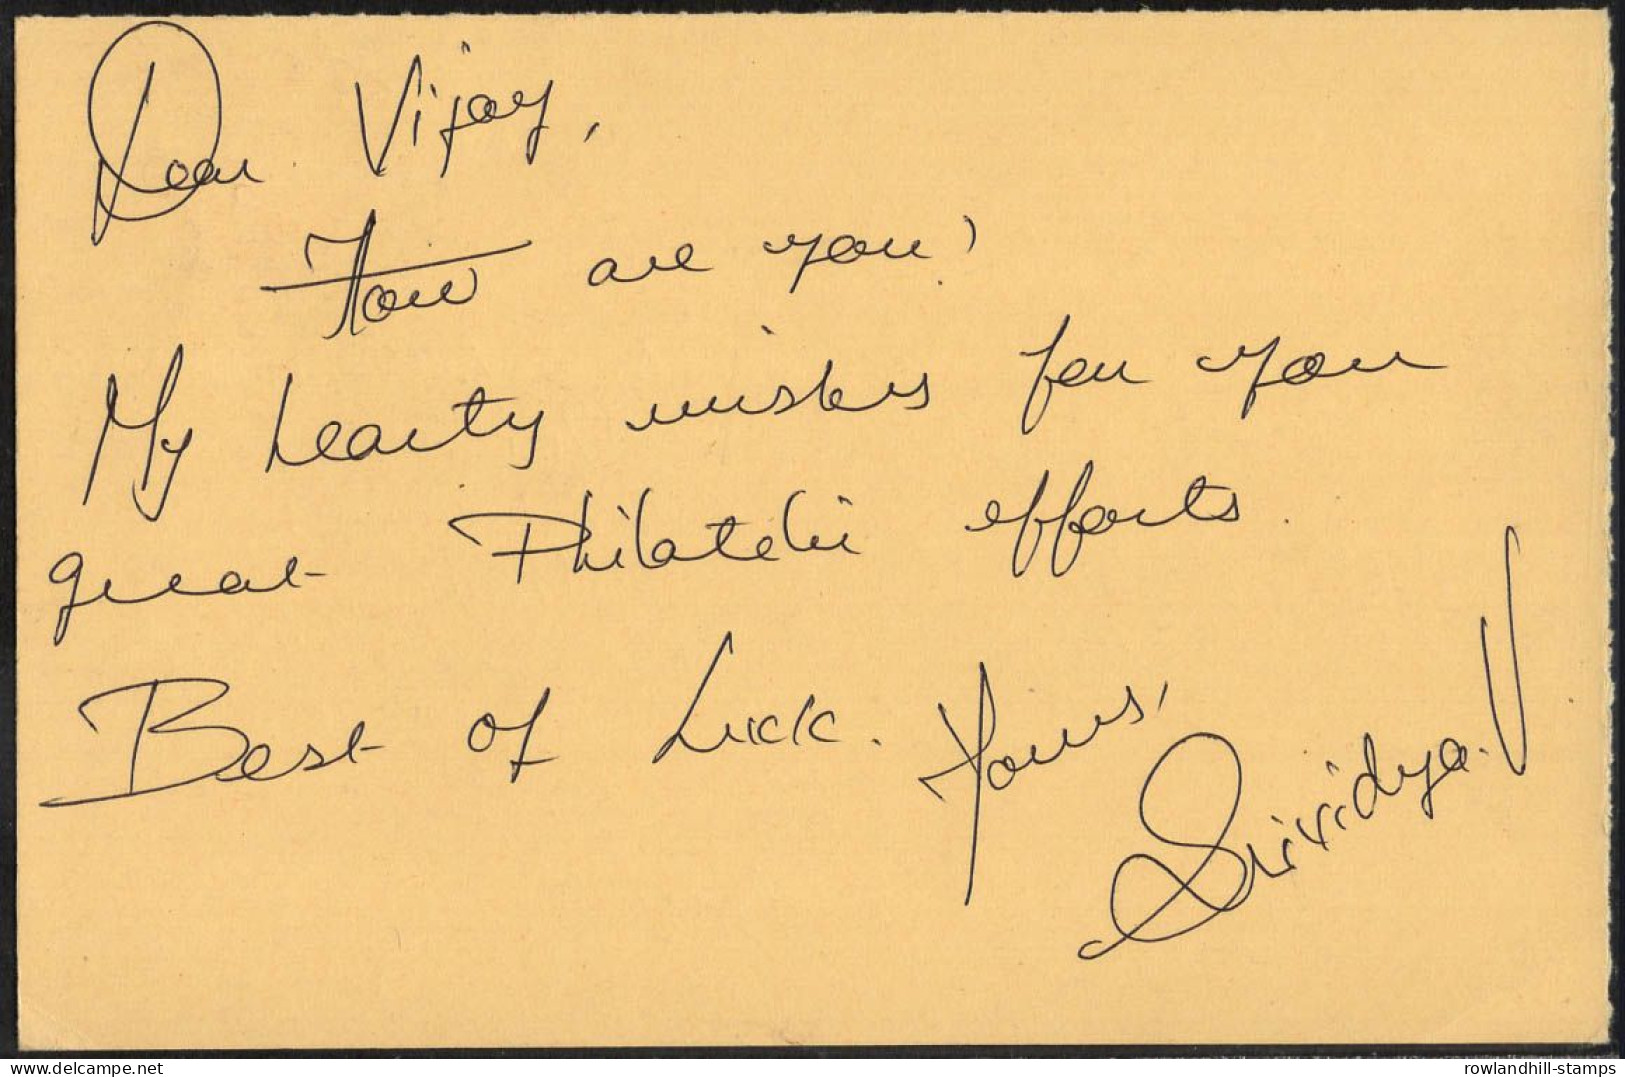 Dear Vijay,
How are you?
My hearty wishes for you
great Philatelic efforts.
Best of Luck.
Yours,
Srividya.V
delcampe.net
rowlandhill-stamps